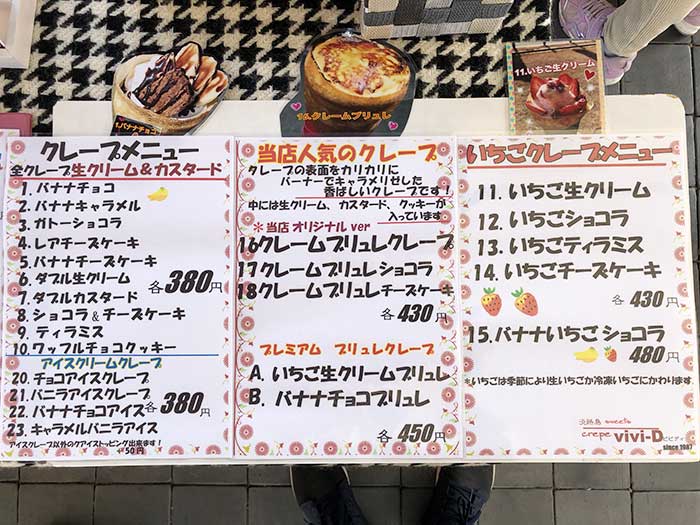 1.バナナチョコ
16.クレームブリュレ
11.いちご生クリーム
クレープメニュー
全クレープ生クリーム&カスタード
1. バナナチョコ
2. バナナキャラメル
3. ガトーショコラ
4. レアチーズケーキ
5. バナナチーズケーキ
6. ダブル生クリーム
7. ダブルカスタード
8. ショコラ&チーズケーキ
9. ティラミス
10. ワッフルチョコクッキー
各380円
アイスクリームクレープ
20. チョコアイスクレープ
21. バニラアイスクレープ
22. バナナチョコアイス
23. キャラメルバニラアイス
各380円
アイスクレープ以外のクアイストッピング出来ます!
+50円
当店人気のクレープ
クレープの表面をカリカリに
バーナーでキャラメリゼした
香ばしいクレープです!
中には生クリーム、カスタード、クッキーが
入っています
*当店 オリジナル ver
16クレームブリュレクレープ
17クレームブリュレショコラ
18クレームブリュレチーズケーキ
各430円
プレミアム ブリュレクレープ
A. いちご生クリームブリュレ
B. バナナチョコブリュレ
各450円
いちごクレープメニュー
11. いちご生クリーム
12. いちごショコラ
13. いちごティラミス
14. いちごチーズケーキ
各430円
15. バナナいちごショコラ
480円
*いちごは季節により生いちごか冷凍いちごにかわります。
淡路島 sweets
crepe vivi-D ビビディ
since 1987